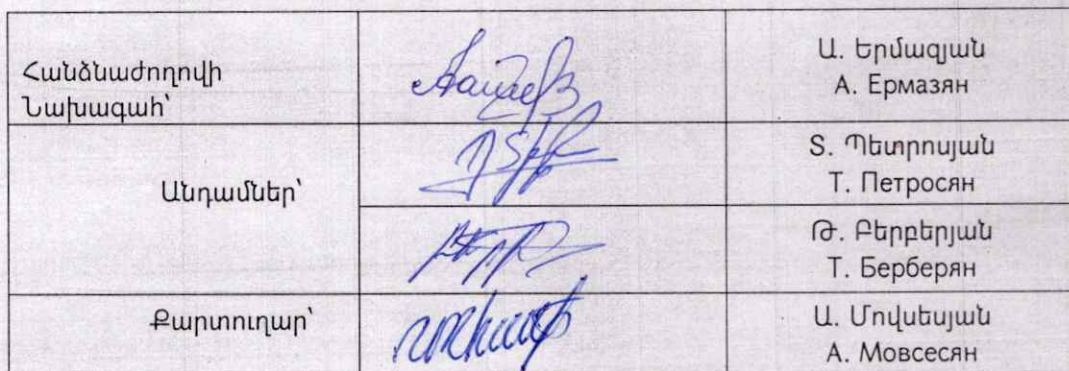 Հանձնաժողովի
Նախագահ՝
Ա. Երմազյան
А. Ермазян
Անդամներ՝
Տ. Պետրոսյան
Т. Петросян
Թ. Բերբերյան
Т. Берберян
Քարտուղար՝
Ա. Մովսեսյան
А. Мовсесян